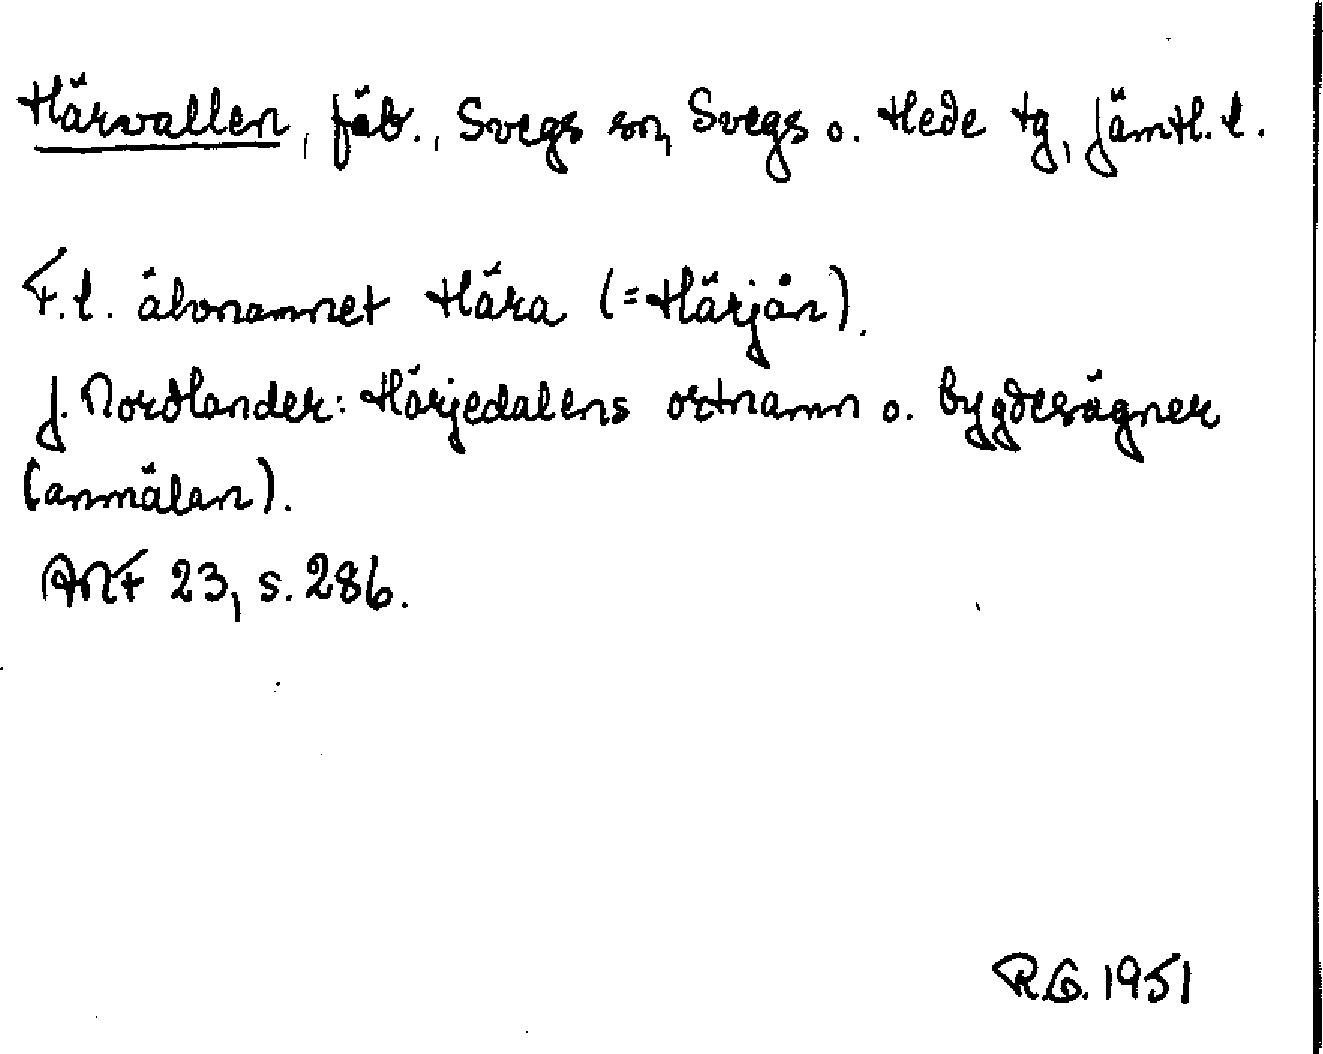 Härvallen, fäb., Svegs sn, Svegs o. Hede tg, Jämtl. l.
F.l. älvnamnet Hära (=Härjån).
J. Nordlander: Härjedalens ortnamn o. bygdesägner
(anmälan).
ANF 23, s. 286.
R.G. 1951